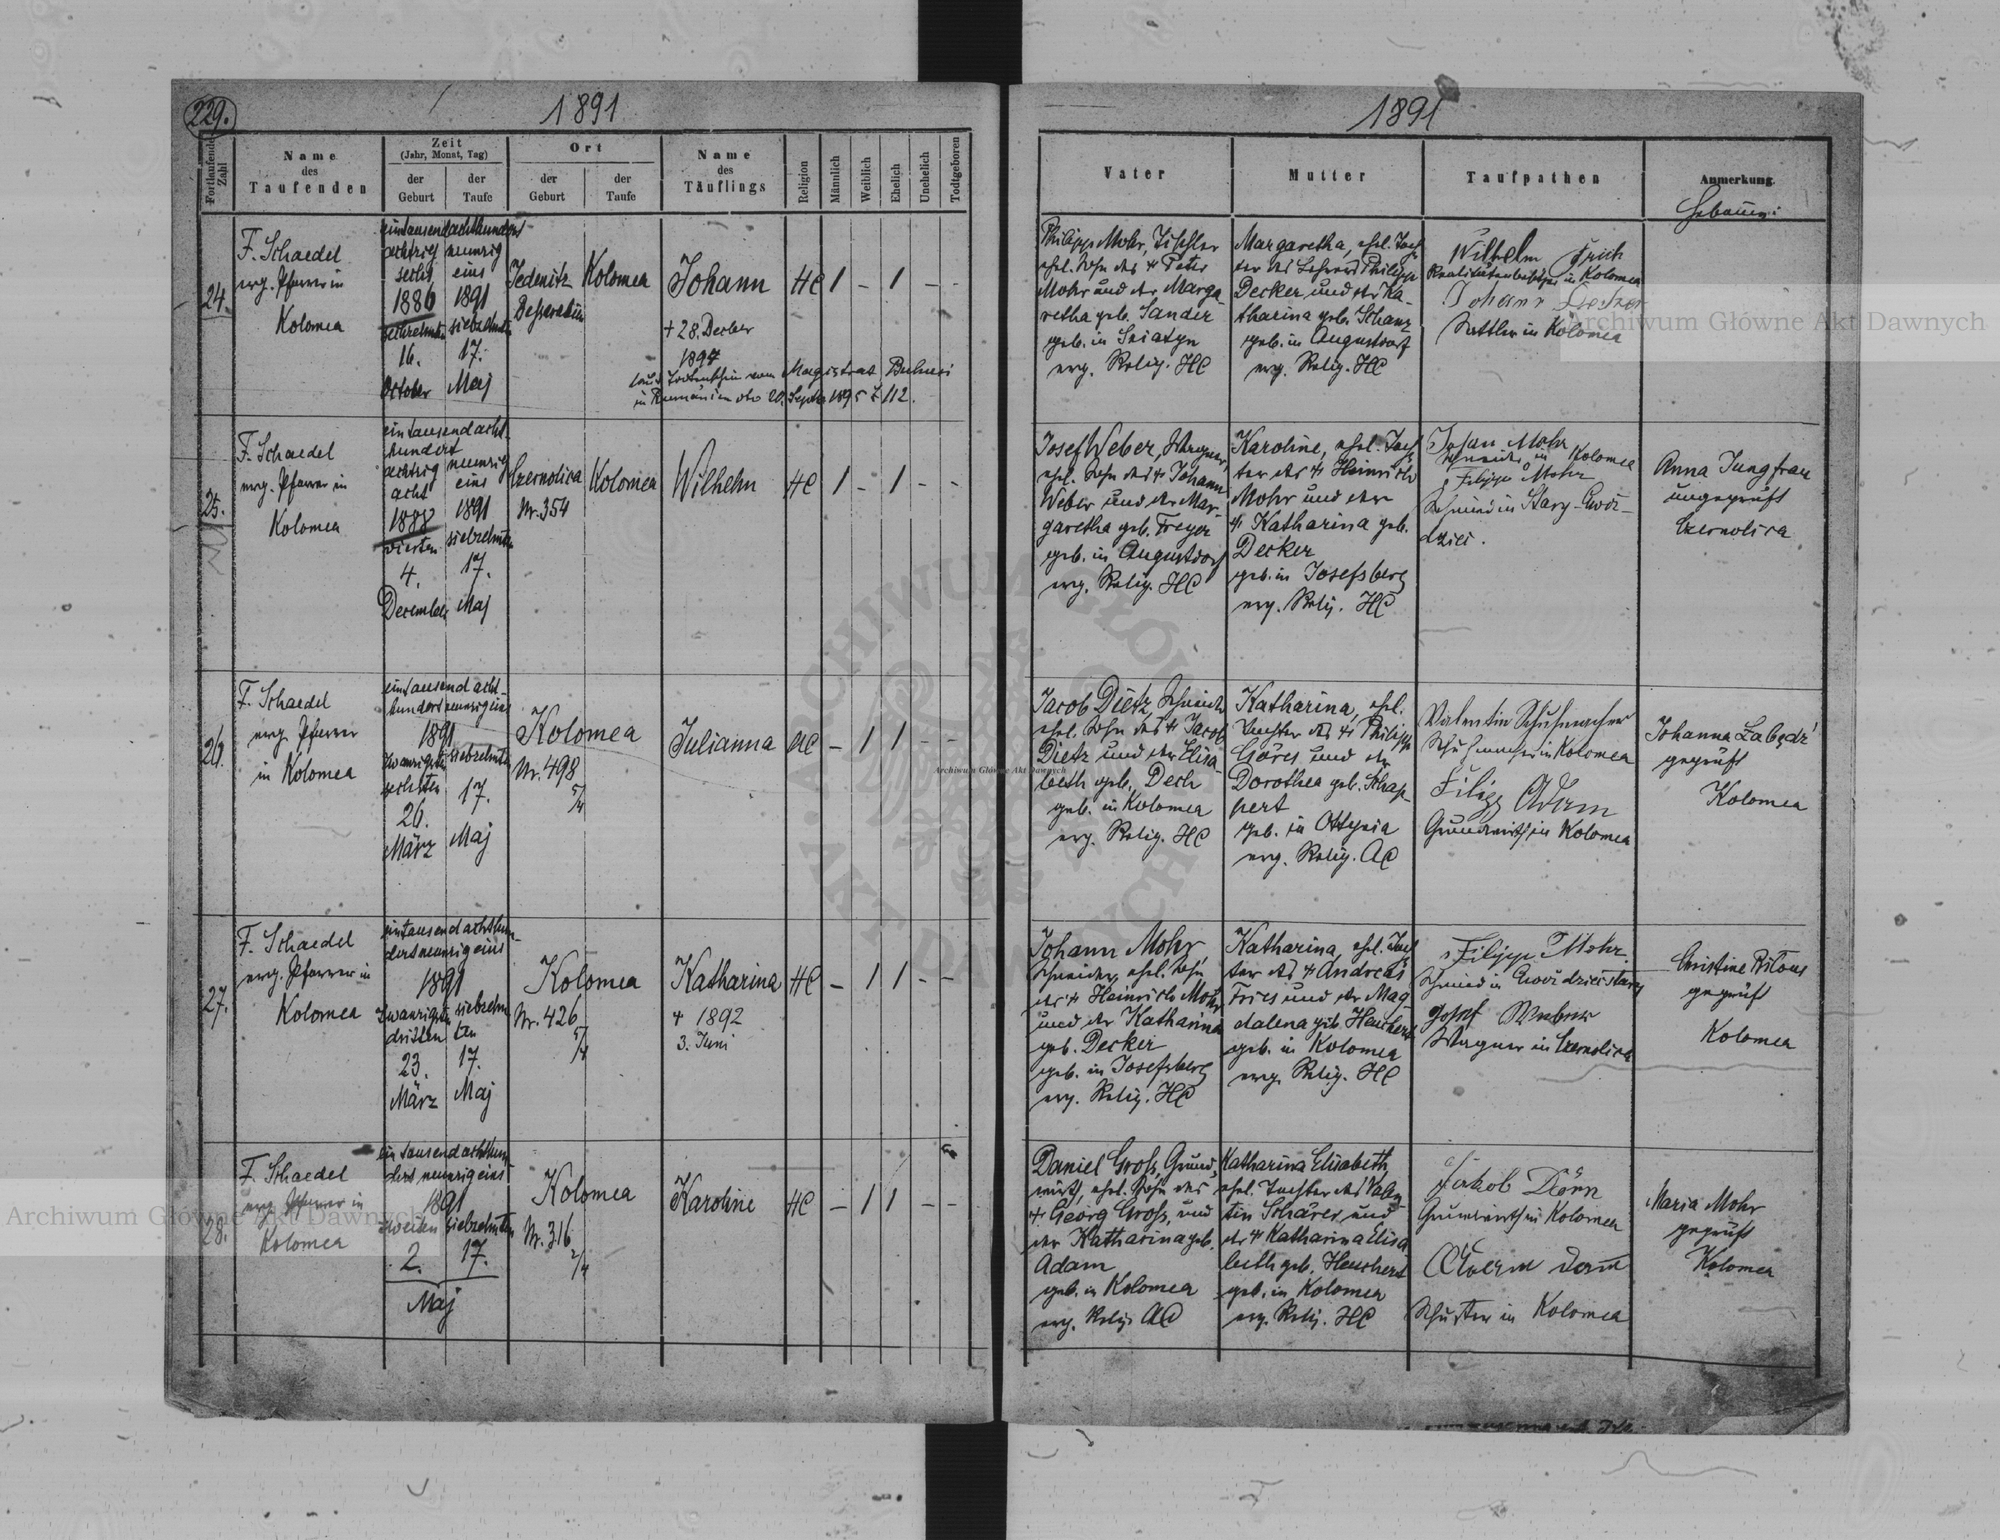 229.
1891
1891
Fortlaufende Zahl
Name
des
Taufenden
Zeit
(Jahr, Monat, Tag)
der
Geburt
der
Taufe
Ort
der
Geburt
der
Taufe
Name
des
Täuflings
Religion
Männlich
Weiblich
Ehelich
Unehelich
Todtgeboren
Vater
Mutter
Taufpathen
Anmerkung.
24.
F. Schaedel
evg. Pfarrer in
Kolomea
eintausendachthundert
achtzig neunzig
sechs eins
1886 1891
sechzehnten siebzehnten
16. 17.
October Maj
Kolomea
Johann
HC 1 – 1 – –
+ 28. Decber
in Rumänien
Philipp Mohr, Tischler
ehel. Sohn des + Peter
Mohr und der Marga-
retha geb. Sander
geb. in Sniatyn
evg. Relig. HC
Margaretha, ehel. Toch-
ter des Lehrers Philipp
Decker und der Ka-
tharina geb. Schanz
geb. in Augustdorf
evg. Relig. HC
Wilhelm
Realitätenbesitzer in Kolomea
Johann Decker
Sattler in Kolomea
25.
F. Schaedel
evg. Pfarrer in
Kolomea
eintausendacht-
hundert
achtzig neunzig
acht eins
1888 1891
vierten siebzehnten
4. 17.
December Maj
Czernolica
Nr. 354
Kolomea
Wilhelm
HC 1 – 1 – –
Josef Weber, Wagner,
ehel. Sohn des + Johann
Weber und der Mar-
garetha geb. Freyer
geb. in Augustdorf
evg. Relig. HC
Karoline, ehel. Toch-
ter des + Heinrich
Mohr und der
+ Katharina geb.
Decker
geb. in Josefsberg
evg. Relig. HC
Johan Mohr
Schneider in Kolomea
Filipp Mohr
Schmied in Stary-Gwoz-
dziec.
Anna Jungfrau
ungeprüft
Czernolica
26.
F. Schaedel
evg. Pfarrer
in Kolomea
eintausendacht-
hundertneunzigeins
1891
zwanzigsten siebzehnten
sechsten
26. 17.
März Maj
Kolomea
Nr. 498
Julianna
AC – 1 1 – –
Jacob Dietz, Schneider
ehel. Sohn des + Jacob
Dietz und der Elisa-
beth geb. Desch
geb. in Kolomea
evg. Relig. HC
Katharina, ehel.
Tochter des + Philipp
Göres und der
Dorothea geb. Schap-
pert
geb. in Ottynia
evg. Relig. AC
Valentin Schuhmacher
Schuhmacher in Kolomea
Filipp Adam
Grundwirth in Kolomea
Johanna Łabędź
geprüft
Kolomea
27.
F. Schaedel
evg. Pfarrer in
Kolomea
eintausendachthun-
dertneunzigeins
1891
zwanzigsten siebzehn-
dritten ten
23. 17.
März Maj
Kolomea
Nr. 426
Katharina
HC – 1 1 – –
+ 1892
3. Juni
Johann Mohr
Schneider, ehel. Sohn
des + Heinrich Mohr
und der Katharina
geb. Decker
geb. in Josefsberg
evg. Relig. HC
Katharina, ehel. Toch-
ter des + Andreas
Fries und der Mag-
dalena geb. Heuchert
geb. in Kolomea
evg. Relig. HC
Filipp Mohr
Schmied in Gwozdziec stary
Josef Weber
Wagner in Czernolica
Christine Bilous
geprüft
Kolomea
28.
F. Schaedel
evg. Pfarrer in
Kolomea
eintausendachthun-
dertneunzigeins
1891
zweiten siebzehnten
2. 17.
Maj
Kolomea
Nr. 316
Karoline
HC – 1 1 – –
Daniel Gross, Grund-
wirth, ehel. Sohn des
+ Georg Gross, und
der Katharina geb.
Adam
geb. in Kolomea
evg. Relig. AC
Katharina Elisabeth,
ehel. Tochter des Valen-
tin Schärer und
der + Katharina Elisa-
beth geb. Heuchert
geb. in Kolomea
evg. Relig. HC
Jakob Dörn
Grundwirth in Kolomea
Schuster in Kolomea
Maria Mohr
geprüft
Kolomea
Archiwum Główne Akt Dawnych
Archiwum Główne Akt Dawnych
Archiwum Główne Akt Dawnych